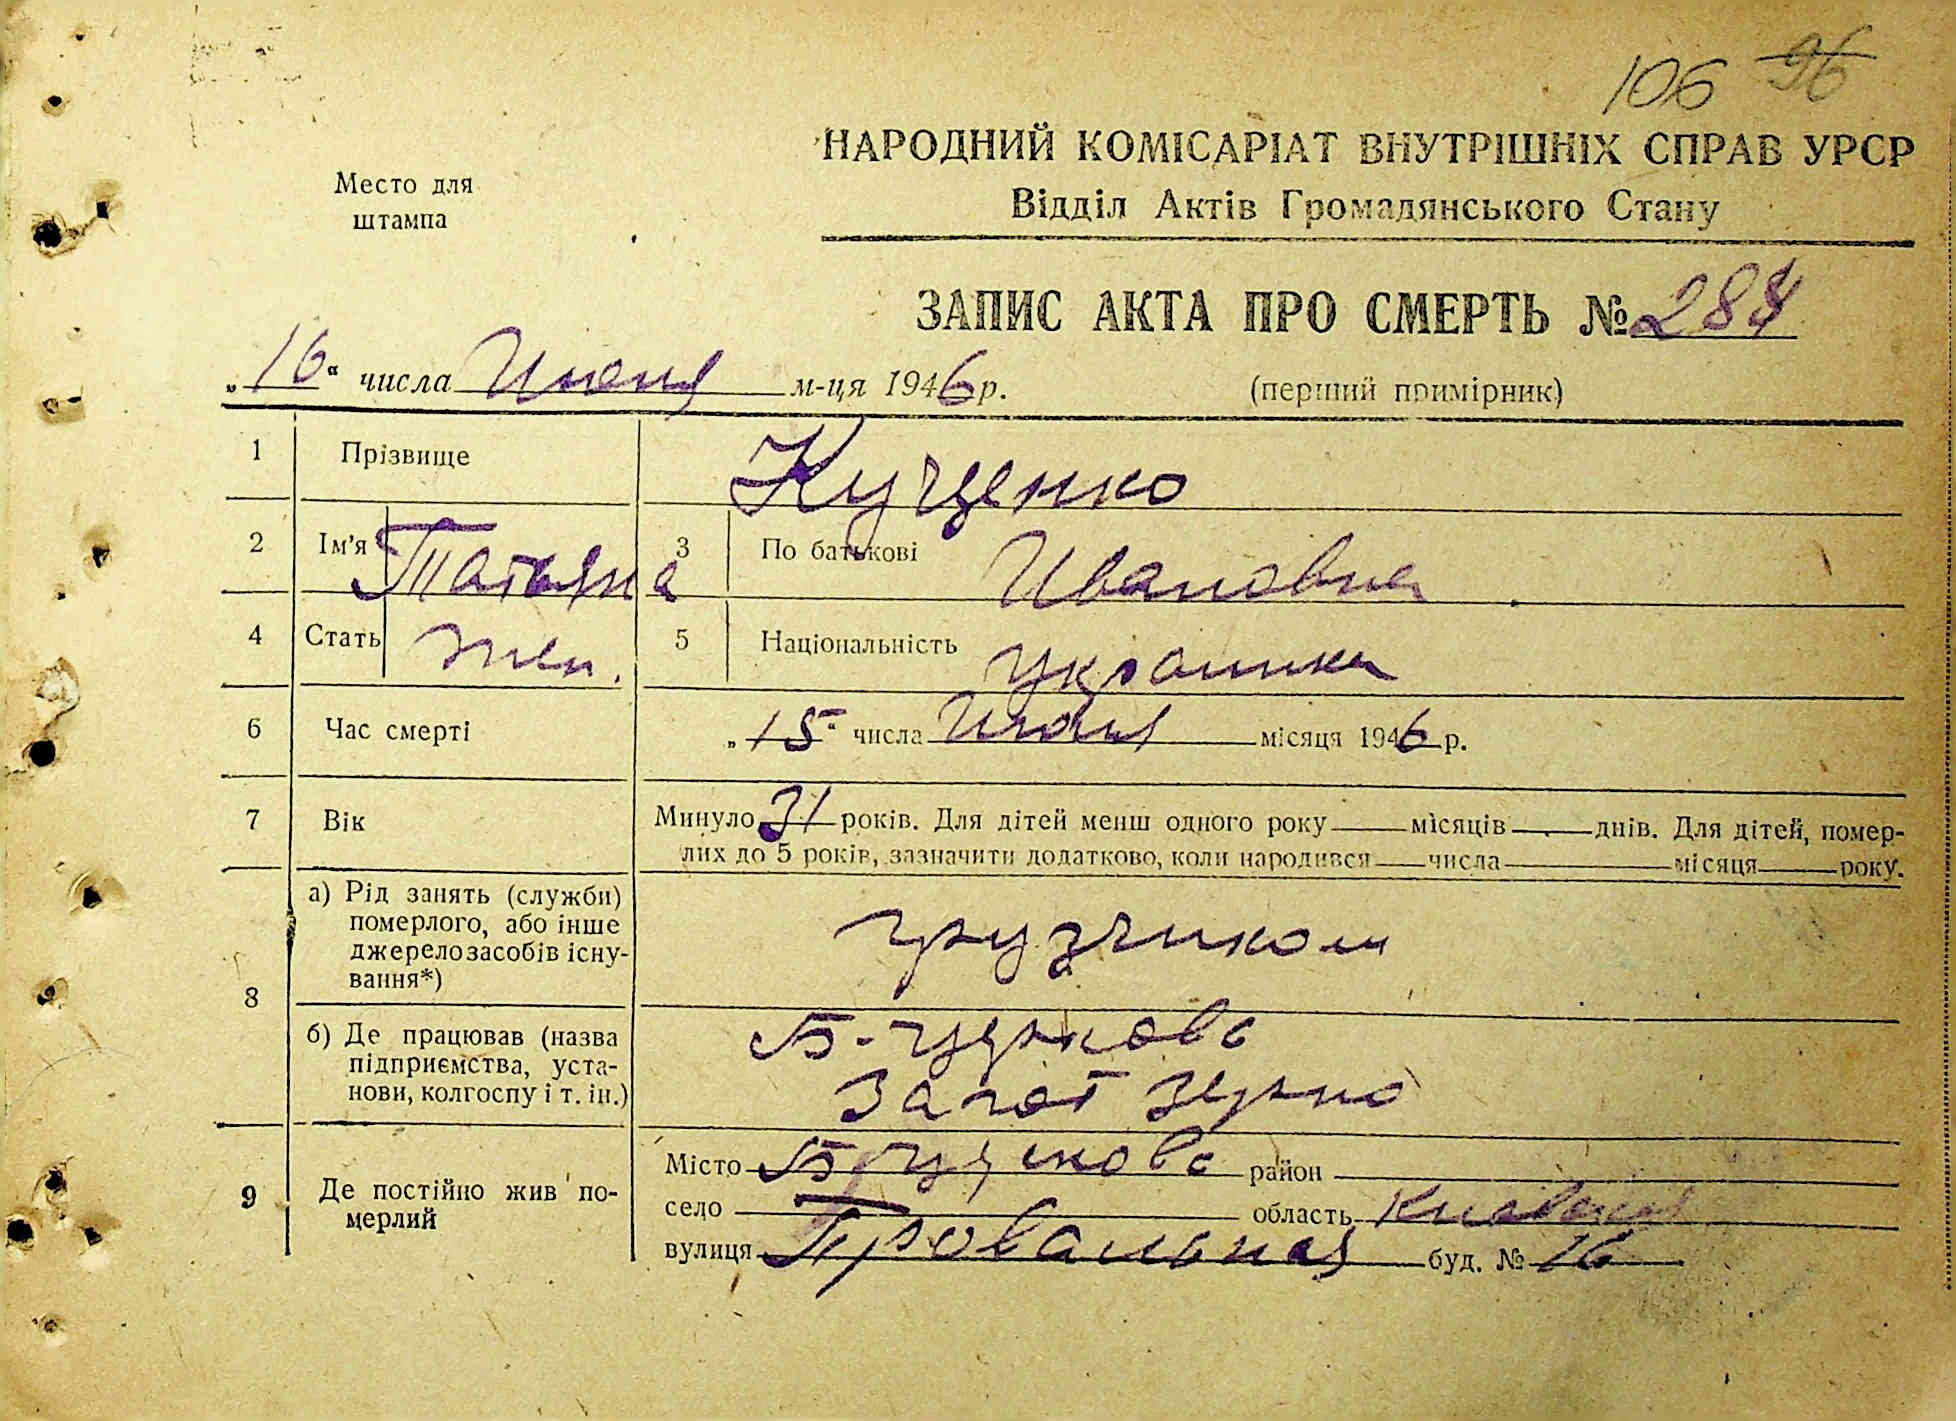 106 96
Место для
штампа
НАРОДНИЙ КОМІСАРІАТ ВНУТРІШНІХ СПРАВ УРСР
Відділ Актів Громадянського Стану
ЗАПИС АКТА ПРО СМЕРТЬ №
„16“ числа Июня м-ця 1946 р. (перший примірник)
1 Прізвище Куценко
2 Ім'я Татьяна 3 По батькові Ивановна
4 Стать жен. 5 Національність украинка
6 Час смерті „15“ числа Июня місяця 1946 р.
7 Вік Минуло 31 років. Для дітей менш одного року місяців днів. Для дітей, помер-
лих до 5 років, зазначити додатково, коли народився числа місяця року.
8 а) Рід занять (служби)
померлого, або інше
джерело засобів існу-
вання*)
грузчиком
б) Де працював (назва
підприємства, уста-
нови, колгоспу і т. ін.)
Б-церковь
Загот зерно
9 Де постійно жив по-
мерлий
Місто Б церковь район
село область Киевская
вулиця Провальная буд. № 16